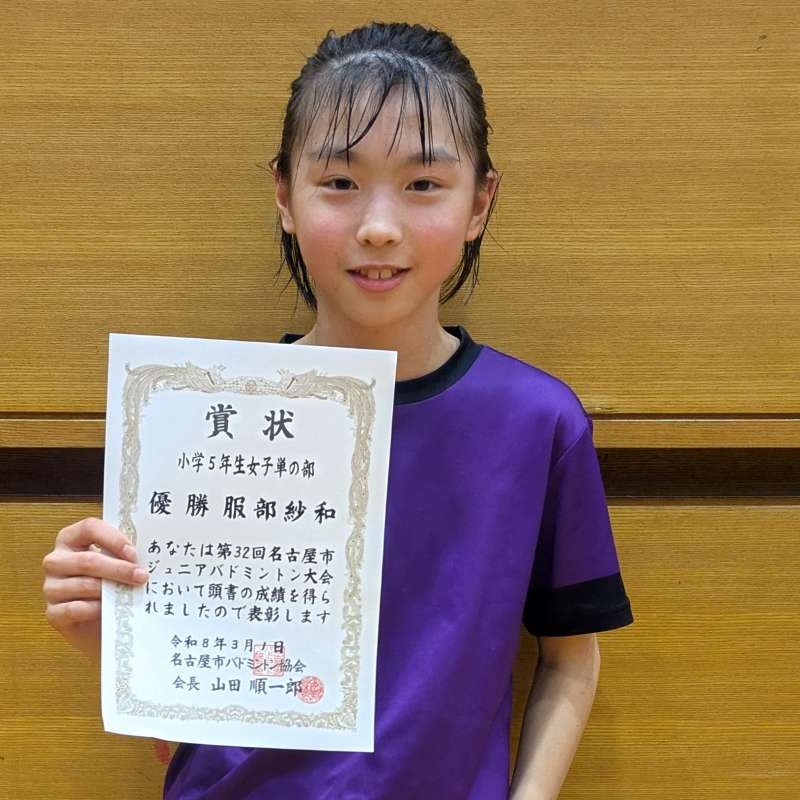 賞状
小学5年生女子単の部
優勝 服部紗和
あなたは第32回名古屋市
ジュニアバドミントン大会
において頭書の成績を得ら
れましたので表彰します
令和8年3月1日
名古屋市バドミントン協会
会長 山田 順一郎